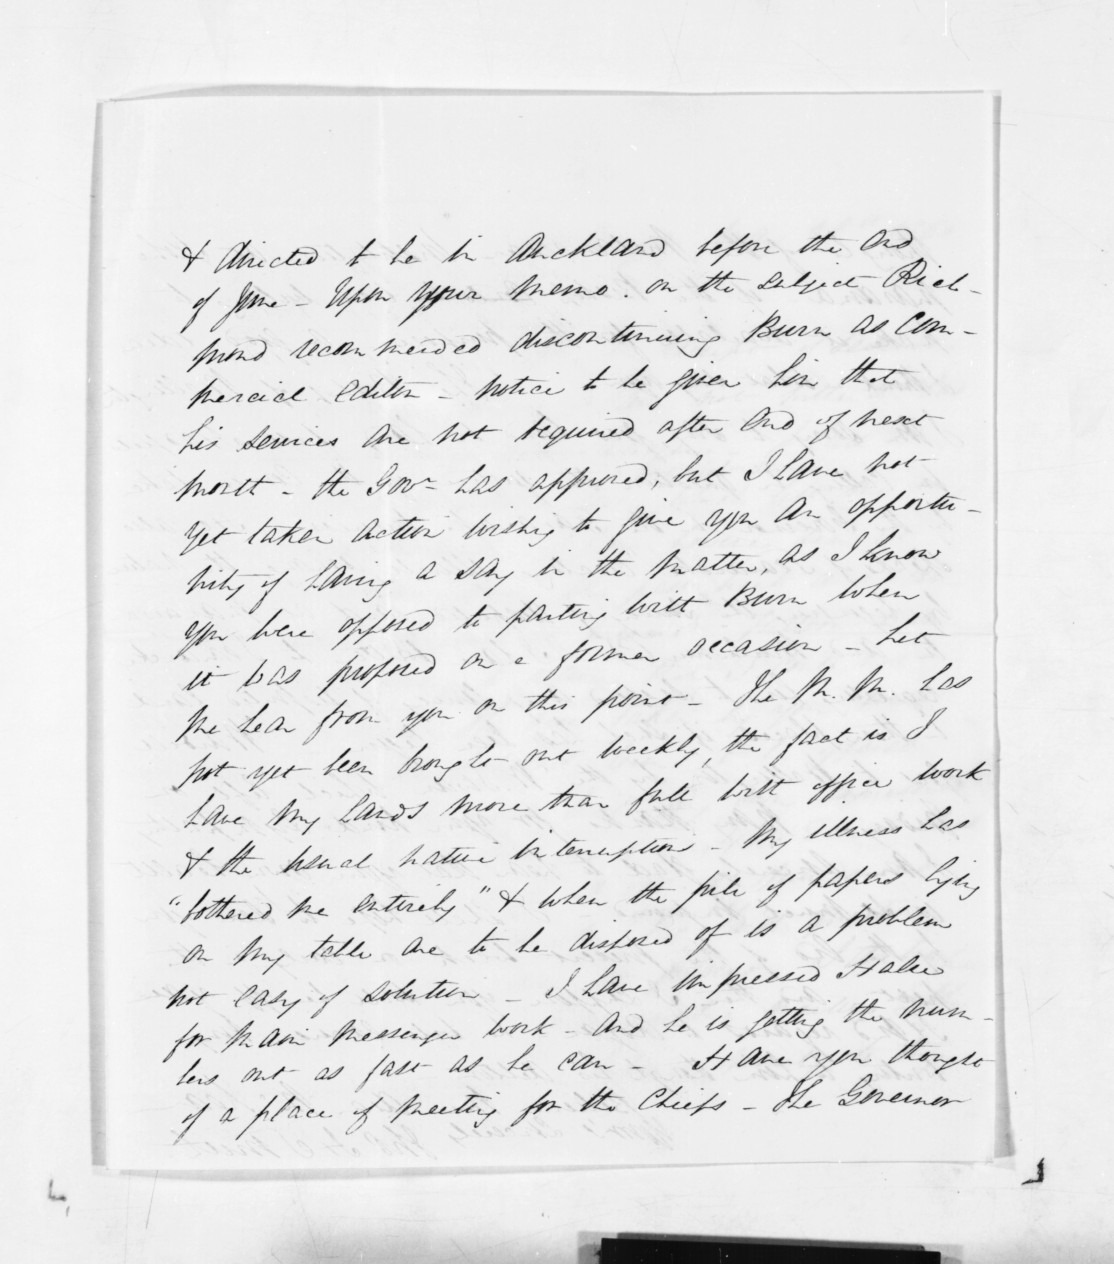 & directed to be in Auckland before the end
of June - Upon your memo. on the subject Rich-
mond recommended discontinuing Burn as Com-
mercial Editor - notice to be given him that
his services are not required after end of next
month - the Govr has approved, but I have not
yet taken action wishing to give you an opportu-
nity of having a say in the matter, as I know
you were opposed to parting with Burn when
it was proposed on a former occasion - Let
me hear from you on this point - The M. M. has
not yet been brought out weekly, the fact is I
have my hands more than full with office work
& the usual native interruption - My illness has
"bothered me entirely" & when the pile of papers lying
on my table are to be disposed of is a problem
not easy of solution - I have impressed Halse
for Maori Messenger work - and he is getting the num-
bers out as fast as he can - Have you thought
of a place of meeting for the Chiefs - The Governor